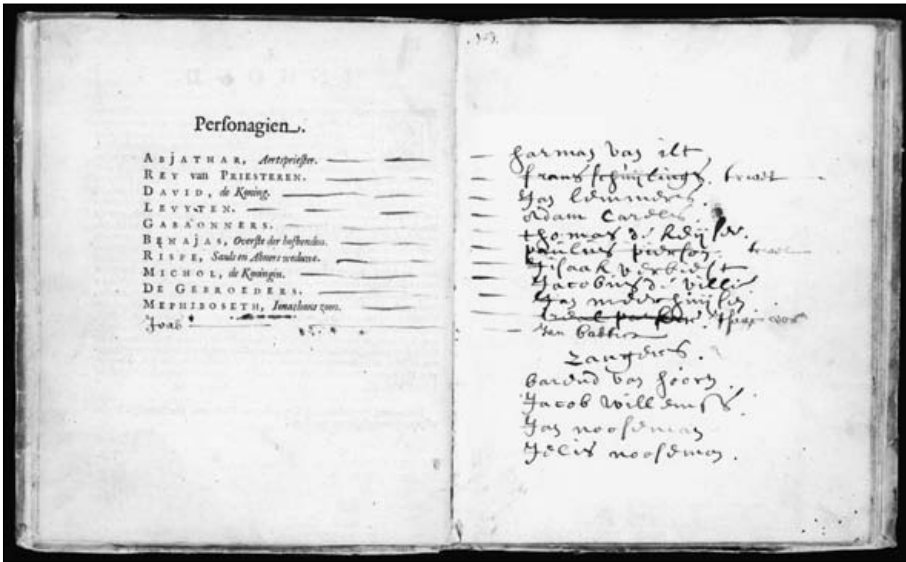 Personagien.
ABJATHAR, Aertspriester.
REY van PRIESTEREN.
DAVID, de Koning.
LEVYTEN.
GABAONNERS.
BENAJAS, Overste der hofbenden.
RISPE, Sauls en Abners weduwe.
MICHOL, de Koningin.
DE GEBROEDERS.
MEPHIBOSETH, Jonathans zoon.
Joab
harman van ilt
frans schuijlingh.
Jan lemmers
adam Carels
thomas de keijser.
paulus pierson.
Jsaak verbiest
Jacobus de ville
Jan meerhuijsen
Jan babtist
zangers.
barend van hoorn.
Jacob willemss.
Jan nooseman
Jelis nooseman.